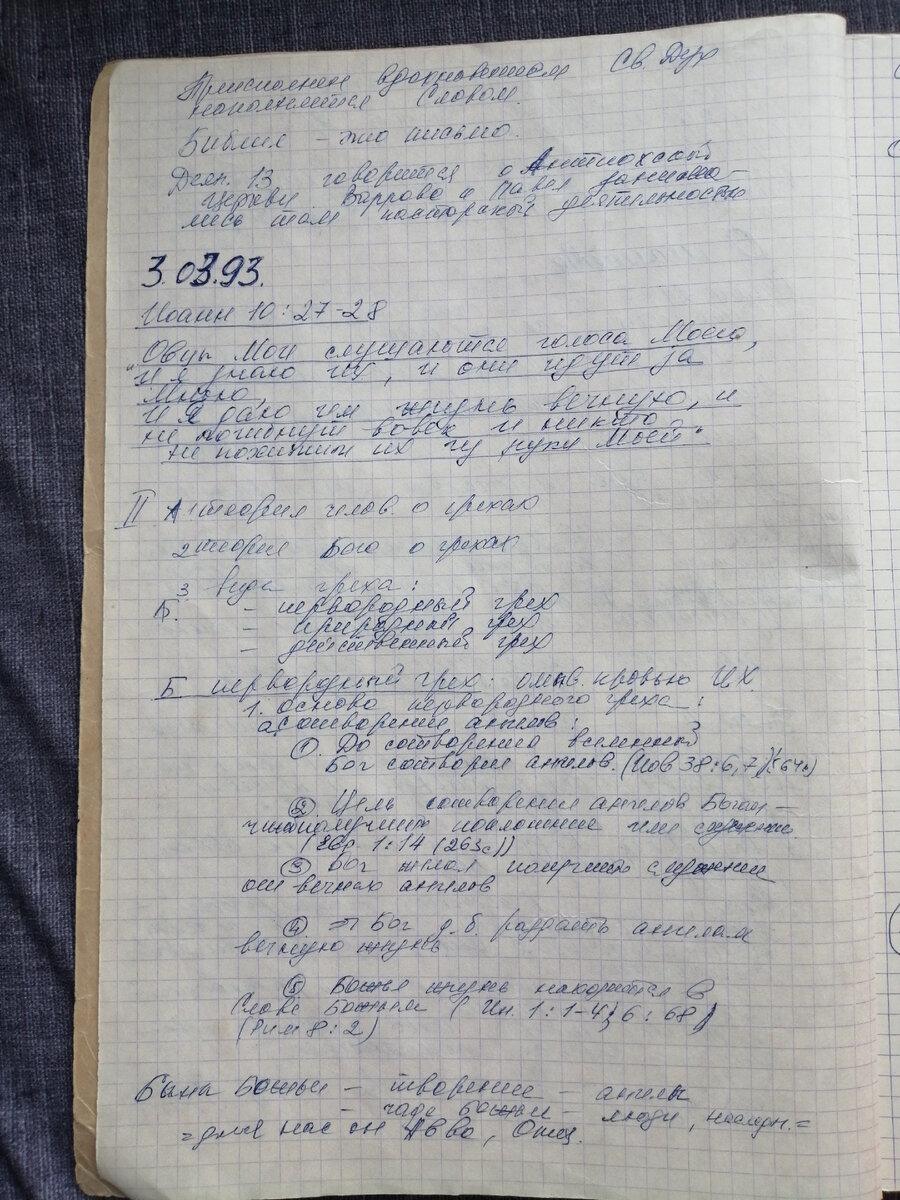 вдохновением Св. Дух
наполняется Словом.
Библия – это письмо.
Деян. 13 говорится о Антиохской
церкви. Варнава и Павел занима-
лись там пасторской деятельностью
3.03.93.
Иоанн 10:27-28
"Овцы Мои слушаются голоса Моего,
и Я знаю их, и они идут за
Мною,
И Я даю им жизнь вечную, и
не погибнут вовек и никто
не похитит их из руки Моей"
II 1 теория челов. о грехах
2 теория Бога о грехах
3 вида греха:
Б. – первородный грех
– природный грех
– действенный грех
Б первородный грех: омыв. кровью ИХ.
1. основа первородного греха:
а) сотворение ангелов:
① До сотворения вселенной
Бог сотворил ангелов. (Иов 38:6,7)
② Цель сотворения ангелов Богом –
поклонение или служение
(Евр 1:14 (263с))
③ Бог желал получить служение
от вечных ангелов
④ ⇒ Бог д.б. раздать ангелам
вечную жизнь
⑤ Божья жизнь находится в
Слове Божьем (Ин. 1:1-4; 6:68)
(Рим 8:2)
Божьи – творение – ангелы
– чада Божьи – люди, наследн. =
= для нас он Авва, Отец.